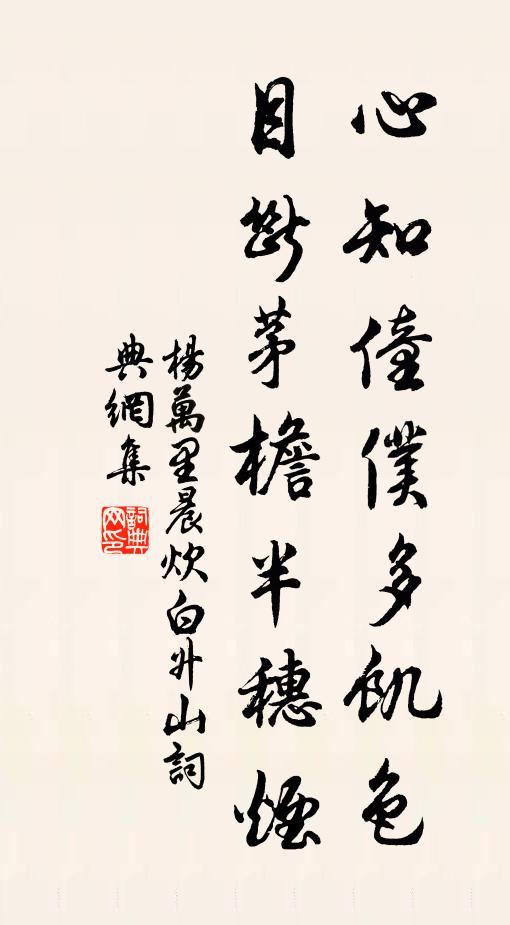 心知僮僕多飢色
目斷茅檐半穗煙
楊萬里晨炊白升山詞
典網集
詞典
网印